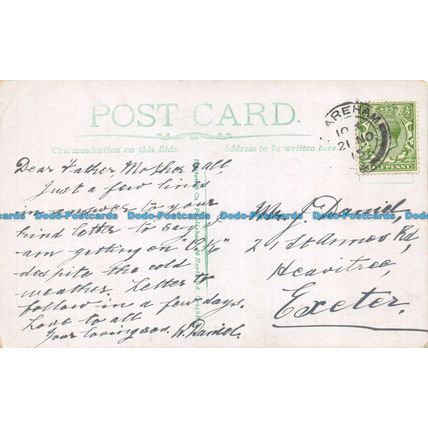 POST CARD.
Communication on this Side.
Address to be written here.
Dear Father Mother & all.
Just a few lines
in answer to your
kind letter to say I
am getting on "OK"
despite the cold
weather. Letter to
follow in a few days.
Love to all
Your loving son. W. Daniel.
J. Daniel,
21 St Annes Rd,
Heavitree,
Exeter.
WAREHAM
21
HALFPENNY
Dodo-Postcards Dodo-Postcards Dodo-Postcards Dodo-Postcards
Dodo-Postcards Dodo-Postcards Dodo-Postcards Dodo-Postcards